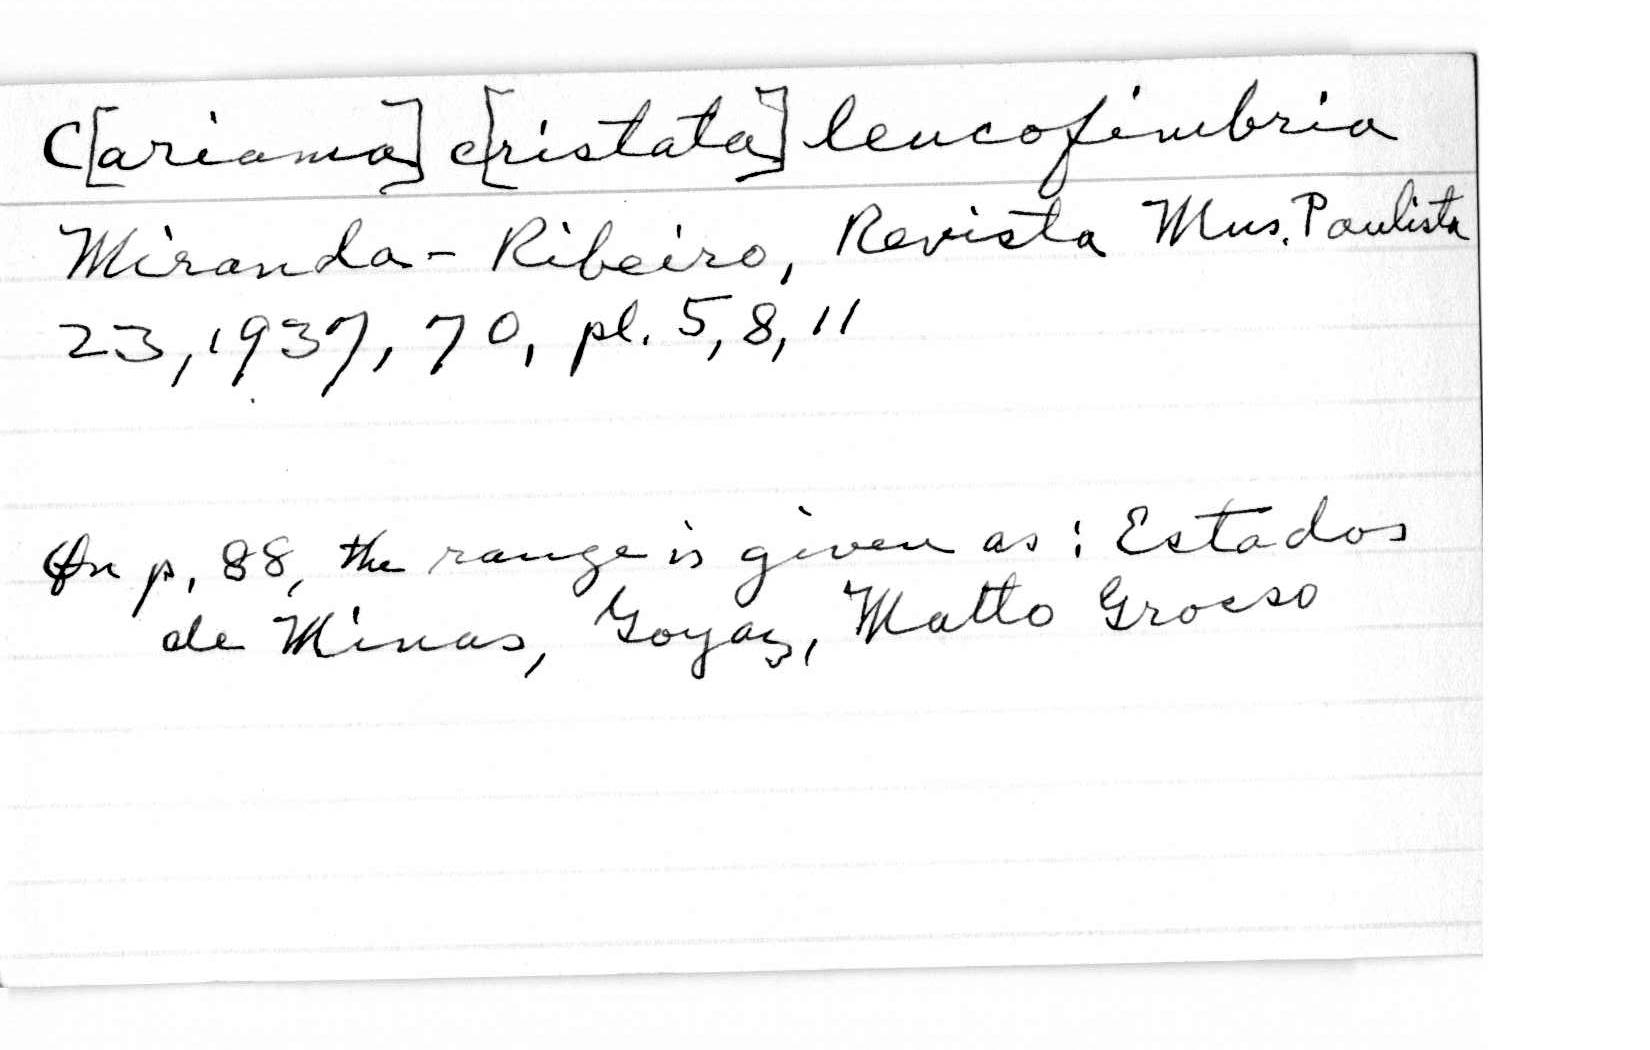 C[ariama] c[ristata] leucofimbria
Miranda-Ribeiro, Revista Mus. Paulista
23, 1937, 70, pl. 5, 8, 11
On p. 88, the range is given as: Estados
de Minas, Goyaz, Matto Grosso